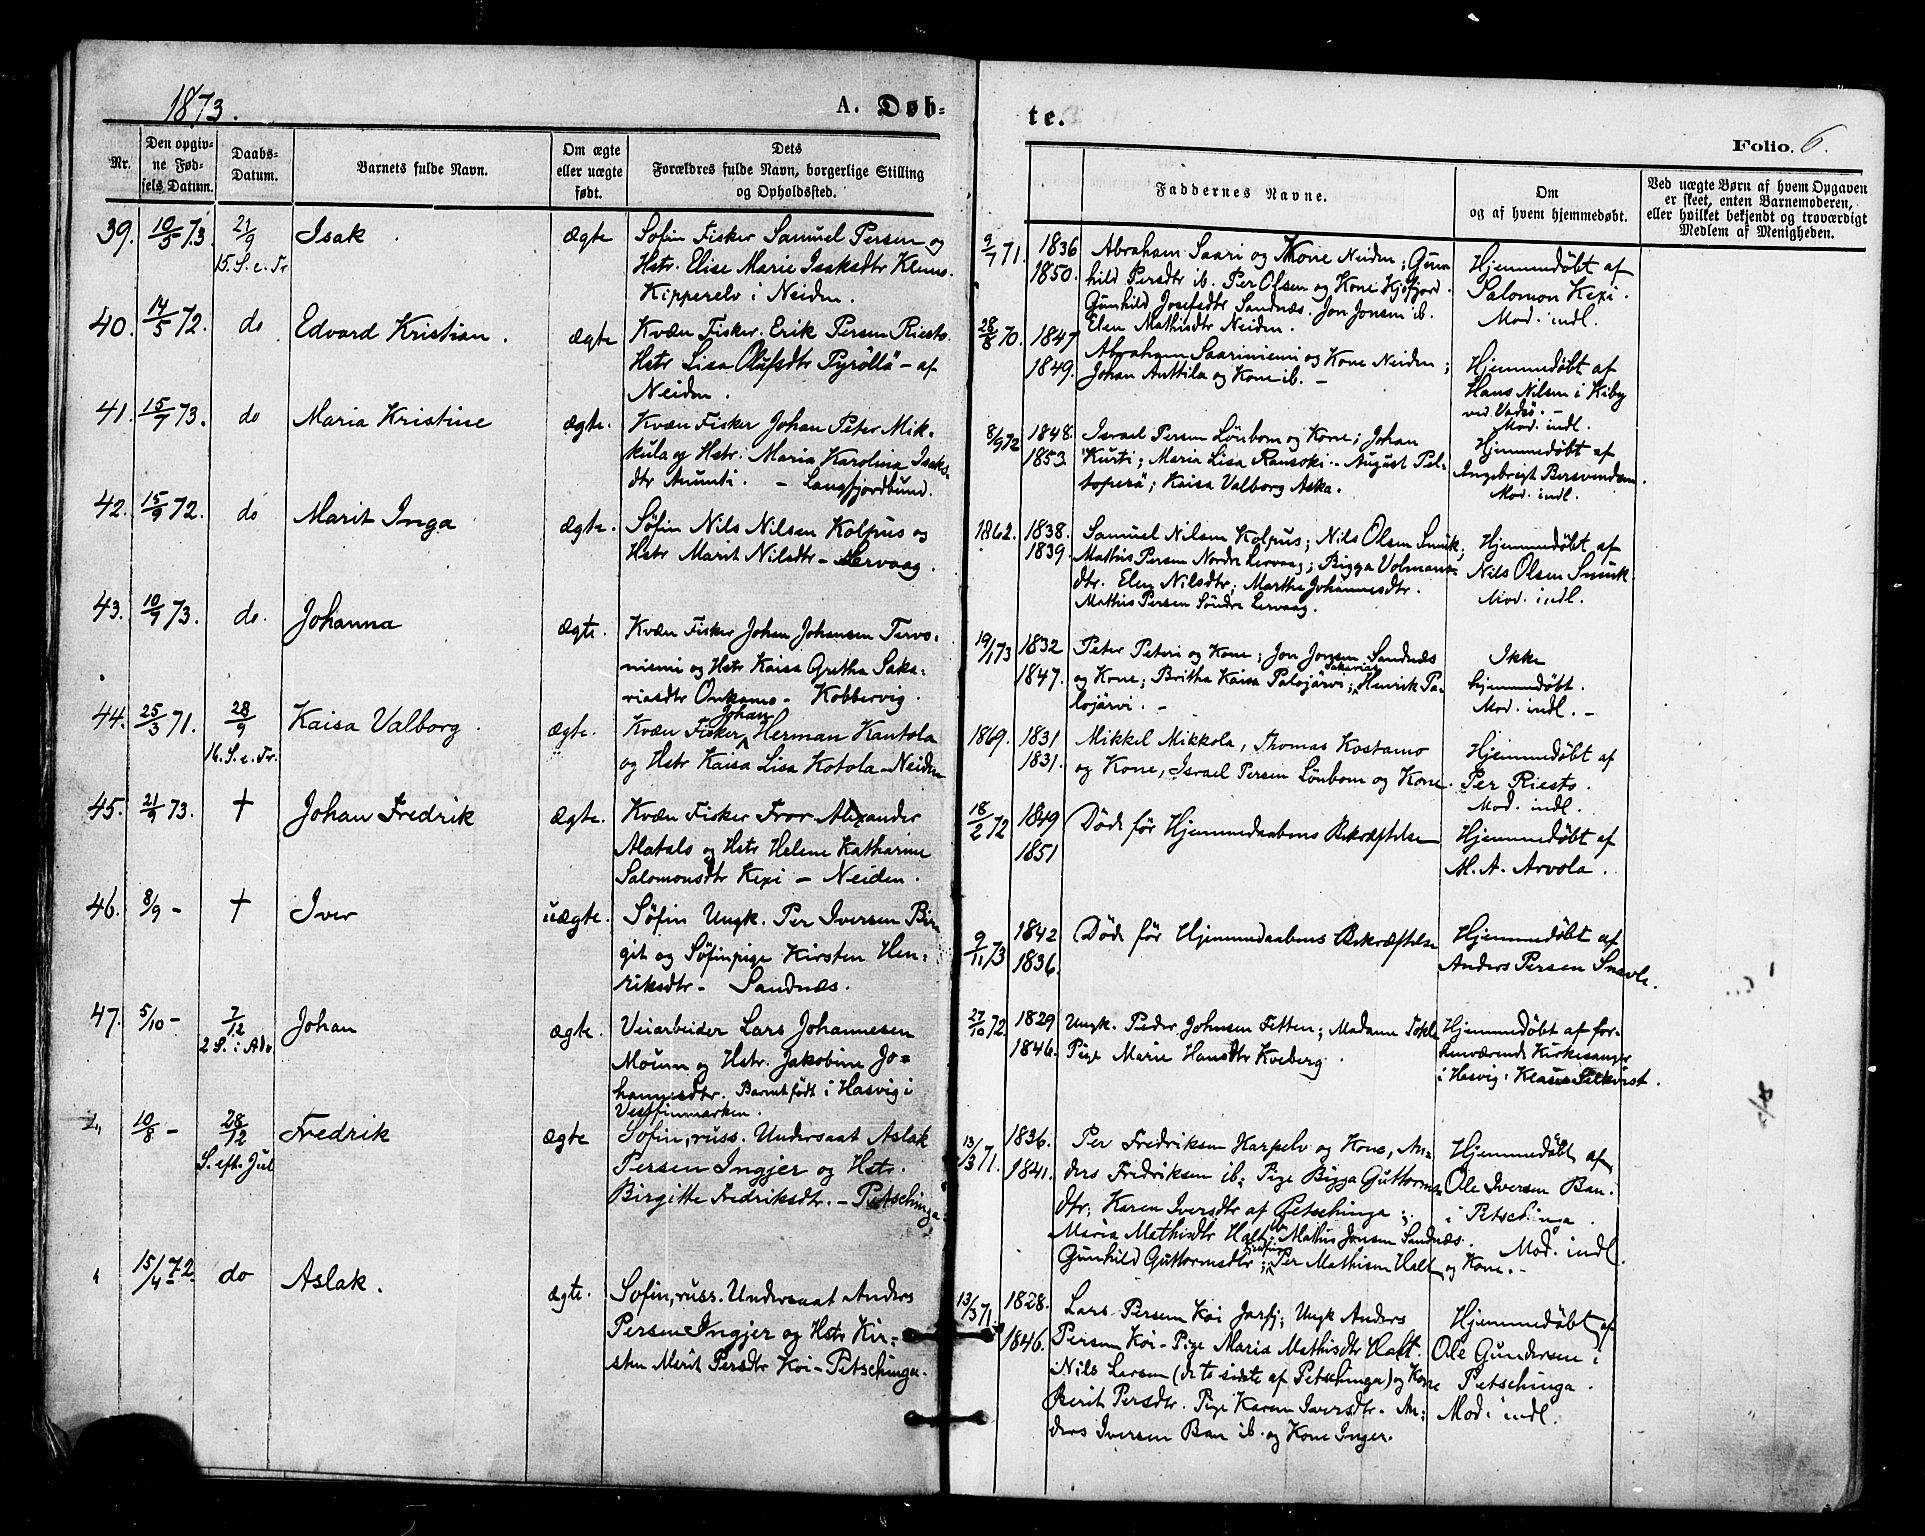 1873.
A. Døb-
te.
Folio. 6.
Nr.
Den opgiv-
ne Fød-
sels Datum.
Daabs-
Datum.
Barnets fulde Navn.
Om ægte
eller uægte
født.
Dets
Forældres fulde Navn, borgerlige Stilling
og Opholdssted.
Faddernes Navne.
Om
og af hvem hjemmedøbt.
Ved uægte Børn af hvem Opgaven
er skeet, enten Barnemoderen,
eller hvilket bekjendt og troværdigt
Medlem af Menigheden.
39. 10/5 73. 21/9 Isak ægte Søfin Fisker Samuel Persen og
15. S. e. Tr Hstr. Elise Marie Isaksdtr
Kipperelv i Neiden.
9/7 71. 1836 Abraham Saari og Kone Neiden; Gun-
1850. hild Persdtr ib. Per Olsen og Kone Kjøfjord.
Gunhild Josefsdtr Sandnæs. Jon Jonsen ib.
Elen Mathisdtr Neiden.
Hjemmedøbt af
Salomon Kexi.
Mod. indl.
40. 14/5 72. do Edvard Kristian. ægte Kvæn Fisker. Erik Persen Riesto
Hstr Lisa Olufsdtr Pyröllä - af
Neiden.
28/8 70. 1847 Abraham Saariniemi og Kone Neiden;
1849. Johan Anttila og Kone ib. -
Hjemmedøbt af
Hans Nilsen i Kiby
ved Vadsö. -
Mod. indl.
41. 15/7 73. do Maria Kristine ægte. Kvæn Fisker Johan Peter Mik-
kula og Hstr. Maria Karolina Isaks-
dtr Anunti. - Langfjordbund.
8/9 72 1848. Israel Persen Lönbom og Kone; Johan
1853. Kurti; Maria Lisa Ransoki - August Pel-
toperä; Kaisa Valborg Aska.
Hjemmedøbt af
Ingebrigt Bersvendsen
Mod. indl.
42. 15/9 72. do Marit Inga ægte. Søfin Nils Nilsen Kolpus og
Hstr Marit Nilsdtr - Lervaag.
1862. 1838. Samuel Nilsen Kolpus; Nils Olsen Smuk;
1839. Mathis Persen Nordre Lervaag; Bigga Volmans-
dtr. Elen Nilsdtr; Marthe Johannesdtr.
Mathis Persen Söndre Lervaag.
Hjemmedøbt af
Nils Olsen Smuk
Mod. indl.
43. 10/9 73. do. Johanna ægte. Kvæn Fisker Johan Johansen Tervo-
niemi og Hstr Kaisa Gretha Saka-
riasdtr Onkamo - Kobbervig.
19/1 73 1832 Peter Peteri og Kone; Jon Jonsen Sandnæs
1847. og Kone; Britha Kaisa Palojärvi; Sakarias Henrik Pa-
lojärvi. -
Ikke
hjemmedøbt.
Mod. indl. -
44. 25/3 71. 28/9 Kaisa Valborg. ægte. Kvæn Fisker Johan Herman Kantola
16. S. e. Tr. og Hstr Kaisa Lisa Kotola - Neiden
1869. 1831 Mikkel Mikkola, Thomas Kostamo
1831. og Kone, Israel Persen Lönbom og Kone.
Hjemmedøbt af
Per Riesto.
Mod. indl.
45. 21/9 73. † Johan Fredrik ægte. Kvæn Fisker Alexander
Alatalo og Hstr Helene Katharine
Salomonsdtr Kexi - Neiden.
18/2 72 1849 Døde før Hjemmedaabens Bekræftelse
1851
Hjemmedøbt af
M. A. Arvola.
46. 8/9 - † Iver uægte. Søfin Ungk. Per Iversen Bir-
git og Søfinpige Kirsten Hen-
riksdtr - Sandnæs.
9/11 73 1842 Døde før Hjemmedaabens Bekræftelse
1836.
Hjemmedøbt af
Anders Persen Snavle.
47. 5/10 - 7/12 Johan ægte. Veiarbeider Lars Johannesen
2 S. i Adv. Mourn og Hstr. Jakobine Jo-
hannesdtr. Barnet født i Hasvig i
Vestfinmarken.
27/10 72 1829 Ungk. Peder Johnsen Fetten; Madame Tokle
1846. Pige Marie Hansdtr Kveberg.
Hjemmedøbt af for-
henværende Kirkesanger
i Hasvig: Klaus Silkvist.
10/8 - 28/12 Fredrik ægte Søfin, russ. Undersaat Aslak
S. eft. Jul Persen Ingjer og Hstr.
Birgitte Fredriksdtr. - Petschinga.
13/3 71. 1836. Per Fredriksen Karpelv og Kone, An-
1841. ders Fredriksen ib; Pige Bigga Guttorms-
dtr; Karen Iversdtr af Petschinga;
Maria Mathisdtr Halt ib. Mathis Jonsen Sandnæs.
Gunhild Guttormsdtr; Per Mathisen Halt og Kone. -
Hjemmedøbt af
Ole Iversen Ban.
i Petschinga.
Mod. indl.
15/4 72. do Aslak. ægte. Søfin, russ. Undersaat Anders
Persen Ingjer og Hstr Kir-
sten Marit Persdtr Koi - Petschinga.
13/3 71. 1828. Lars Persen Koi Jarfj; Ungk Anders
1846. Persen Koi - Pige Maria Mathisdtr Halt.
Nils Larsen (de to sidste af Petschinga) og Kone
Berit Persdtr. Pige Karen Iversdtr. An-
ders Iversen Ban ib. og Kone Inger.
Hjemmedøbt af
Ole Gundersen i
Petschinga.
Mod. indl.